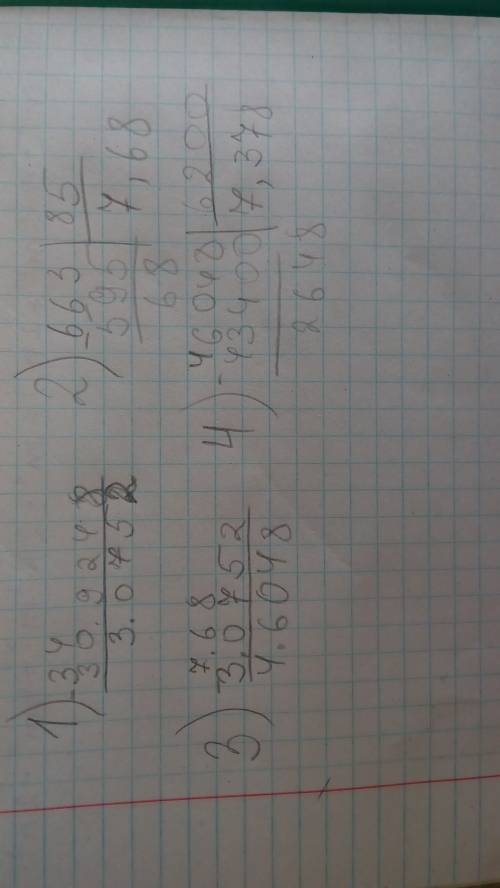 1) -34
30.9248
3.0752
2) -663 | 85
595 | 7,68
68
3) 7.68
3.0752
4.6048
4) -46048 | 6200
43400 | 7,378
2648